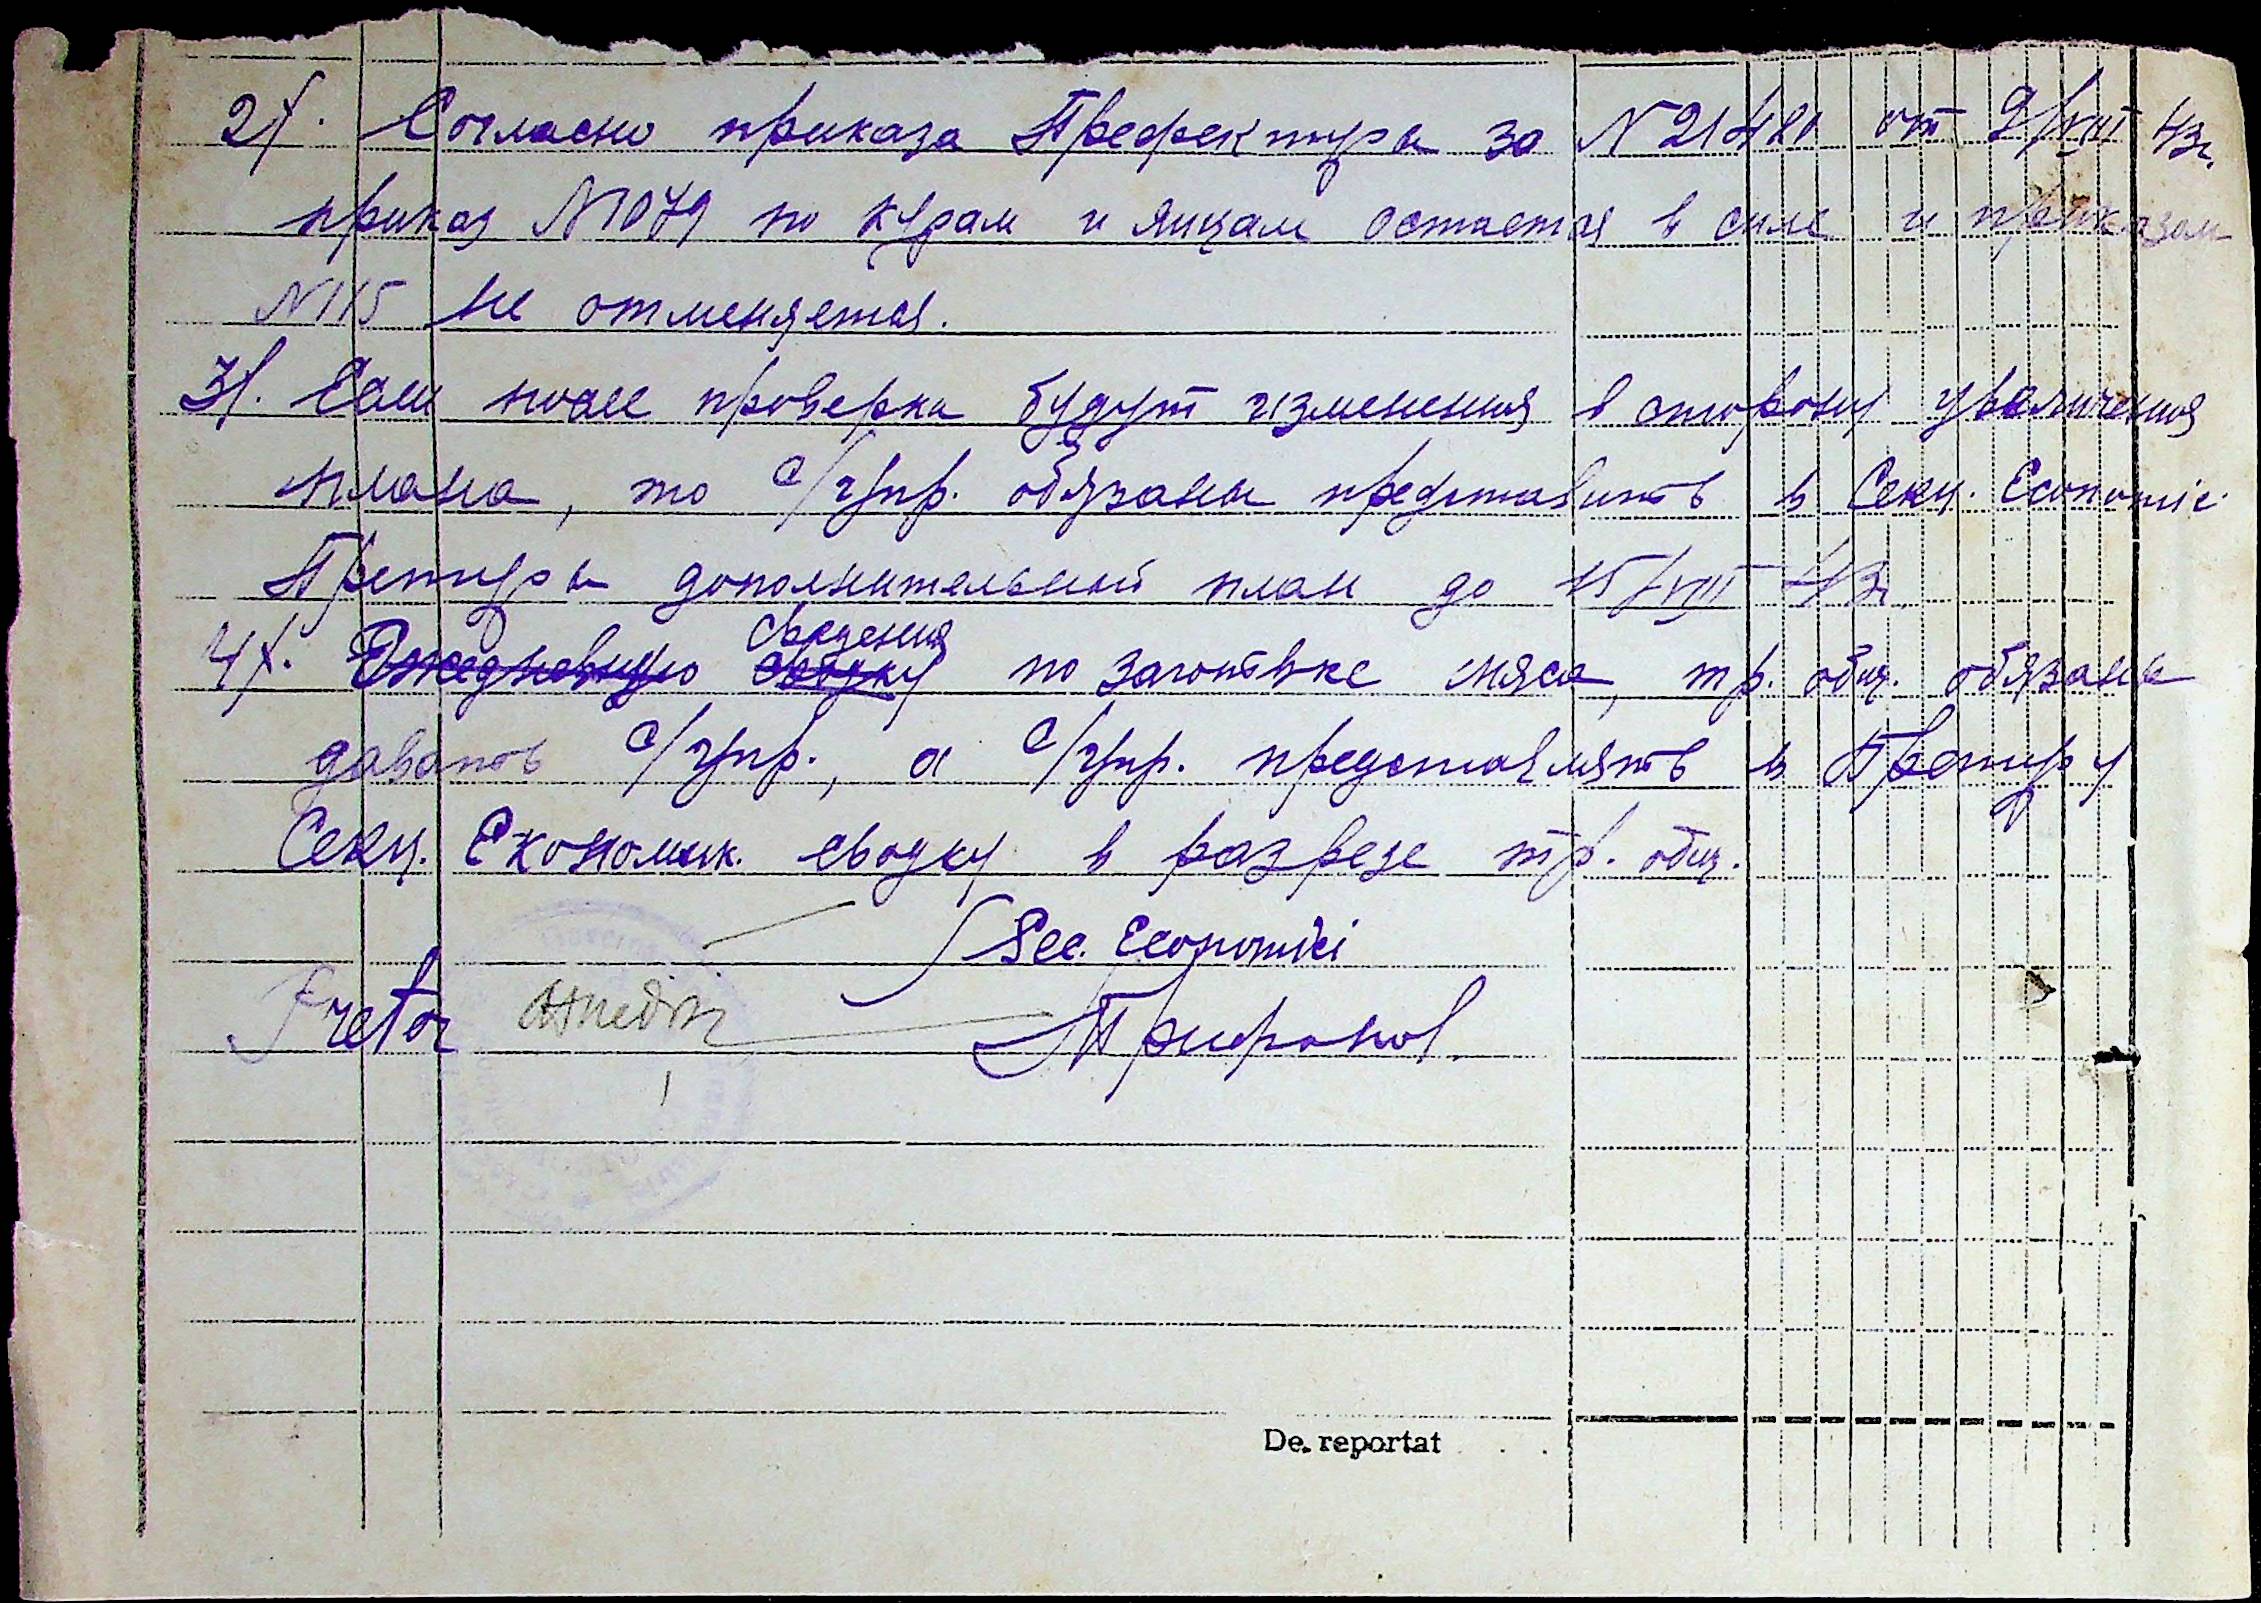 2). Согласно приказа Префектуры за N 21480 от 9/VIII 43г.
приказ N1079 по курам и яицам остается в силе и приказом
N115 не отменяется.
3). Если после проверки будут изменения в сторону увеличения
плана, то с/упр. обязаны представить в Секц. Economic.
Претуры дополнительный план до 15/VIII 43г
сведения
4). Ежедневную сводку по заготовке мяса, тр. общ. обязаны
давать с/упр., а с/упр. представлять в Претуру
Секц. Економик. сводку в разрезе тр. общ.
Sec. Economici
Pretor
Трифонов.
De. reportat